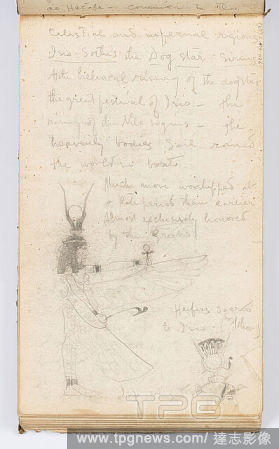 as Hecate –
Celestial and infernal regions
Isis-Sothis the Dog star – Sirius
the heliacal rising of the dogstar
the great festival of Isis – the
rising of the Nile begins – The
heavenly bodies sail round
the world in boats.
Much more worshipped at
a late period than earlier
Almost exclusively honored
by the Greeks
Heifers sacred
to Isis –
TPG
www.tpgnews.com/ 達志影像